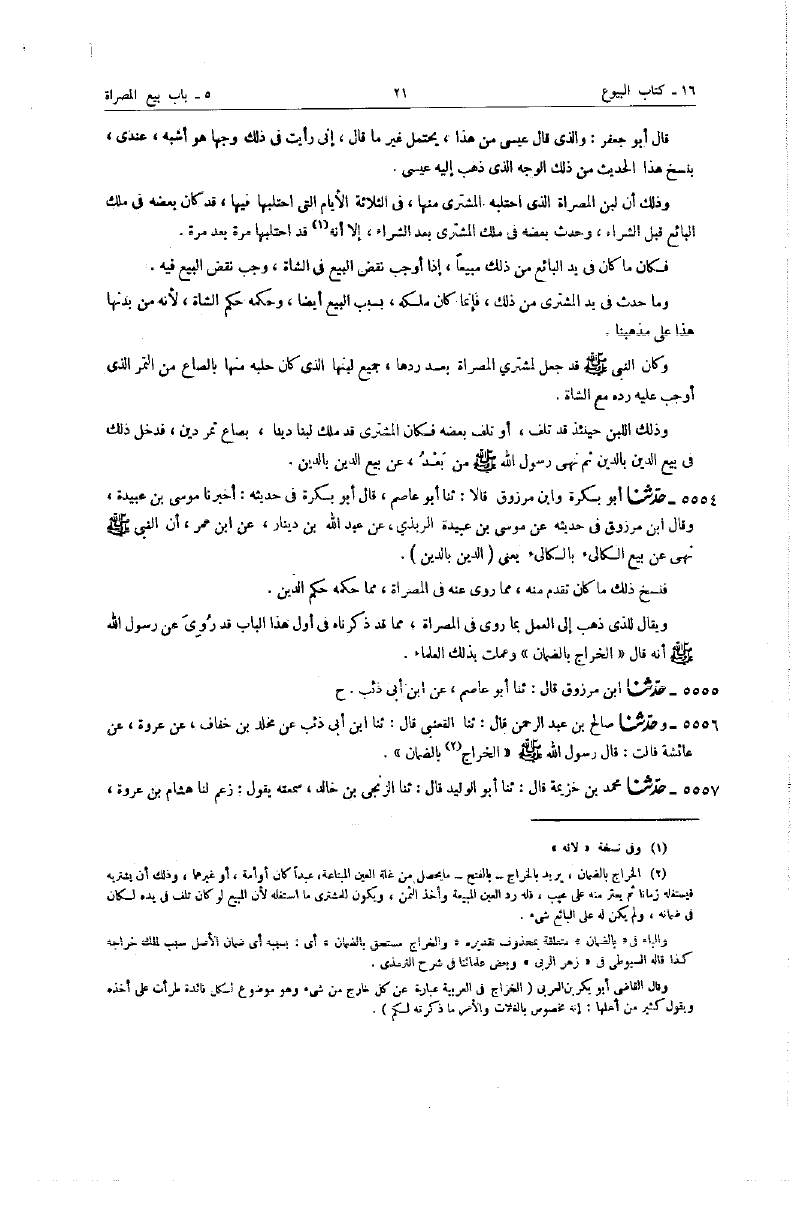 ١٦ ـ كتاب البيوع ٢١ ٥ ـ باب بيع المصراة
قال أبو جعفر : والذى قال عيسى من هذا ، يحتمل غير ما قال ، إنى رأيت فى ذلك وجها هو أشبه ، عندى ،
بنسخ هذا الحديث من ذلك الوجه الذى ذهب إليه عيسى .
وذلك أن لبن المصراة الذى احتلبه المشترى منها ، فى الثلاثة الأيام التى احتلبها فيها ، قد كان بعضه فى ملك
البائع قبل الشراء ، وحدث بعضه فى ملك المشترى بعد الشراء ، إلا أنه(١) قد احتلبها مرة بعد مرة .
فكان ما كان فى يد البائع من ذلك مبيعاً ، إذا أوجب نقض البيع فى الشاة ، وجب نقض البيع فيه .
وما حدث فى يد المشترى من ذلك ، فإنما كان ملكه ، بسبب البيع أيضا ، وحكمه حكم الشاة ، لأنه من بدنها
هذا على مذهبنا .
وكان النبى ﷺ قد جعل لمشتري المصراة بعد ردها ، جميع لبنها الذى كان حلبه منها بالصاع من التمر الذى
أوجب عليه رده مع الشاة .
وذلك اللبن حينئذ قد تلف ، أو تلف بعضه فكان المشترى قد ملك لبنا دينا ، بصاع تمر دين ، فدخل ذلك
فى بيع الدين بالدين ثم نهى رسول الله ﷺ من بَعْدُ ، عن بيع الدين بالدين .
٥٥٥٤ ـ حدثنا أبو بكرة وابن مرزوق قالا : ثنا أبو عاصم ، قال أبو بكرة فى حديثه : أخبرنا موسى بن عبيدة ،
وقال ابن مرزوق فى حديثه عن موسى بن عبيدة الربذي ، عن عبد الله بن دينار ، عن ابن عمر ، أن النبى ﷺ
نهى عن بيع الكالىء بالكالىء يعنى ( الدين بالدين ) .
فنسخ ذلك ما كان تقدم منه ، مما روى عنه فى المصراة ، مما حكمه حكم الدين .
ويقال للذى ذهب إلى العمل بما روى فى المصراة ، مما قد ذكرناه فى أول هذا الباب قد رُوِىَ عن رسول الله
ﷺ أنه قال « الخراج بالضمان » وعملت بذلك العلماء .
٥٥٥٥ ـ حدثنا ابن مرزوق قال : ثنا أبو عاصم ، عن ابن أبى ذئب . ح
٥٥٥٦ ـ وحدثنا صالح بن عبد الرحمن قال : ثنا القعنبى قال : ثنا ابن أبى ذئب عن مخلد بن خفاف ، عن عروة ، عن
عائشة قالت : قال رسول الله ﷺ « الخراج(٢) بالضمان » .
٥٥٥٧ ـ حدثنا محمد بن خزيمة قال : ثنا أبو الوليد قال : ثنا الزنجى بن خالد ، سمعته يقول : زعم لنا هشام بن عروة ،
(١) وفى نسخة « لانه »
(٢) الخراج بالضمان ، يريد بالخراج ــ بالفتح ــ مايحصل من غلة العين المبتاعة، عبداً كان أوأمة ، أو غيرهما ، وذلك أن يشتريه
فيستغله زمانا ثم يعثر منه على عيب ، فله رد العين المبيعة وأخذ الثمن ، ويكون للمشترى ما استغله لأن المبيع لو كان تلف فى يده لكان
فى ضمانه ، ولم يكن له على البائع شىء .
والباء فى « بالضمان » متعلقة بمحذوف تقديره « والخراج مستحق بالضمان » أى : بسببه أى ضمان الأصل سبب لملك خراجه
كذا قاله السيوطى فى « زهر الربى » وبعض علمائنا فى شرح الترمذى .
وقال القاضى أبو بكر بن العربى ( الخراج فى العربية عبارة عن كل خارج من شىء وهو موضوع لكل فائدة طرأت على أخذه
ويقول كثير من أهلها : إنه مخصوص بالغلات والأخر ما ذكرته لكم ) .